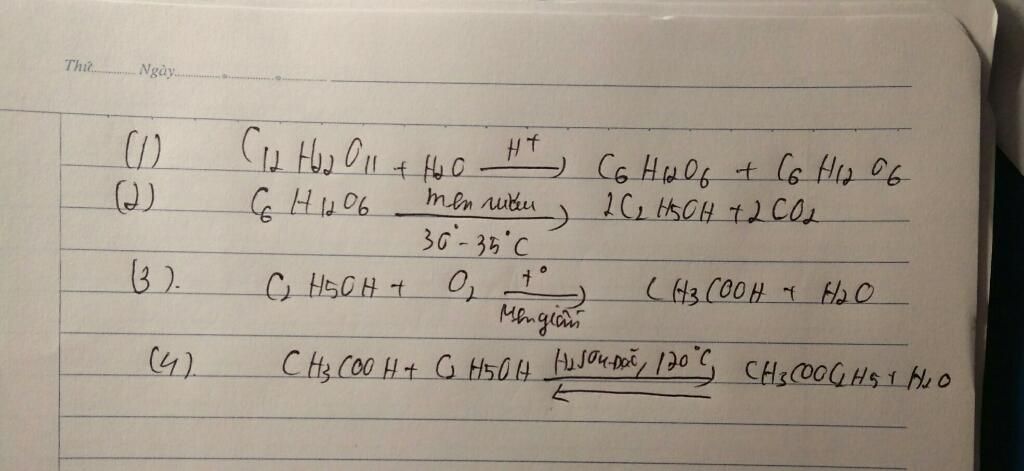 Thứ............ Ngày............
(1) C12H22O11 + H2O —H+→ C6H12O6 + C6H12O6
(2) C6H12O6 —men rượu→ 2C2H5OH + 2CO2
30° - 35°C
(3). C2H5OH + O2 —t°→ CH3COOH + H2O
Men giấm
(4). CH3COOH + C2H5OH —H2SO4 đặc, 120°C⇌ CH3COOC2H5 + H2O